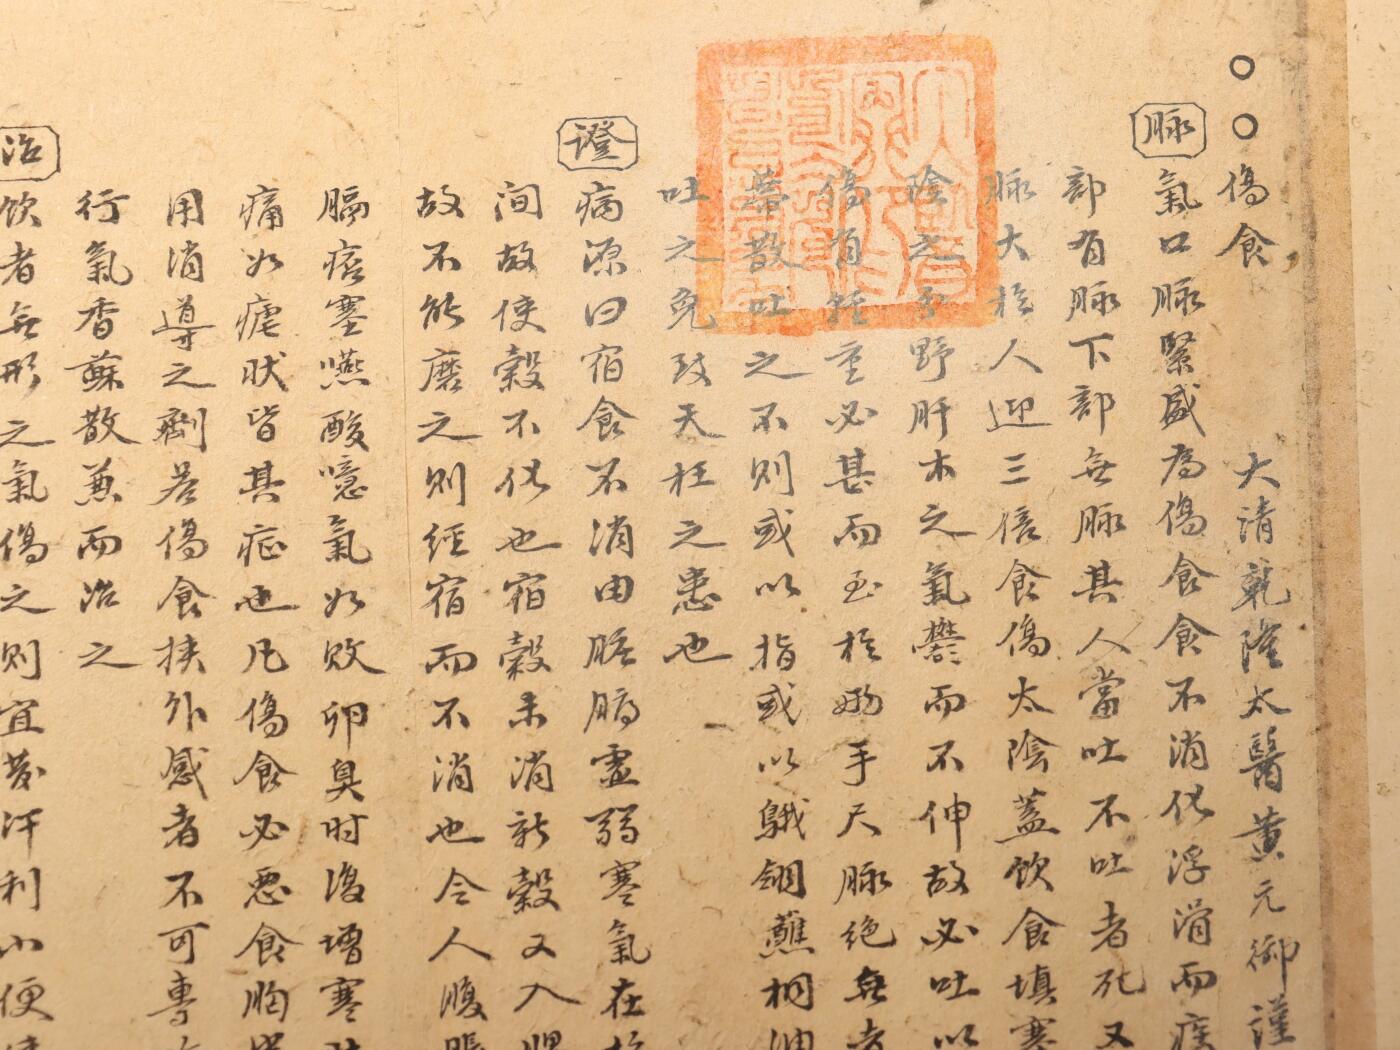 傷食
大清乾隆太醫黄元御謹
脉
氣口脉緊盛為傷食食不消化浮滑而疾
部有脉下部無脉其人當吐不吐者死又
脉大於人迎三倍食傷太陰蓋飲食填塞
陰之分野肝木之氣鬱而不伸故必吐以
傷有輕重必甚而至於兩手尺脉絶無者
蒂散吐之不則或以指或以鵝翎蘸桐油
吐之免致夭枉之患也
證
病源曰宿食不消由臟腑虛弱寒氣在於
间故使穀不化也宿穀未消新穀又入脾
故不能磨之則經宿而不消也令人腹脹
膈痞塞嚥酸噫氣如敗卵臭时復增寒壮
痛如瘧狀皆其症也凡傷食必惡食胸
用消導之劑若傷食挾外感者不可專
行氣香蘇散兼而治之
治
饮者無形之氣傷之則宜發汗利小便